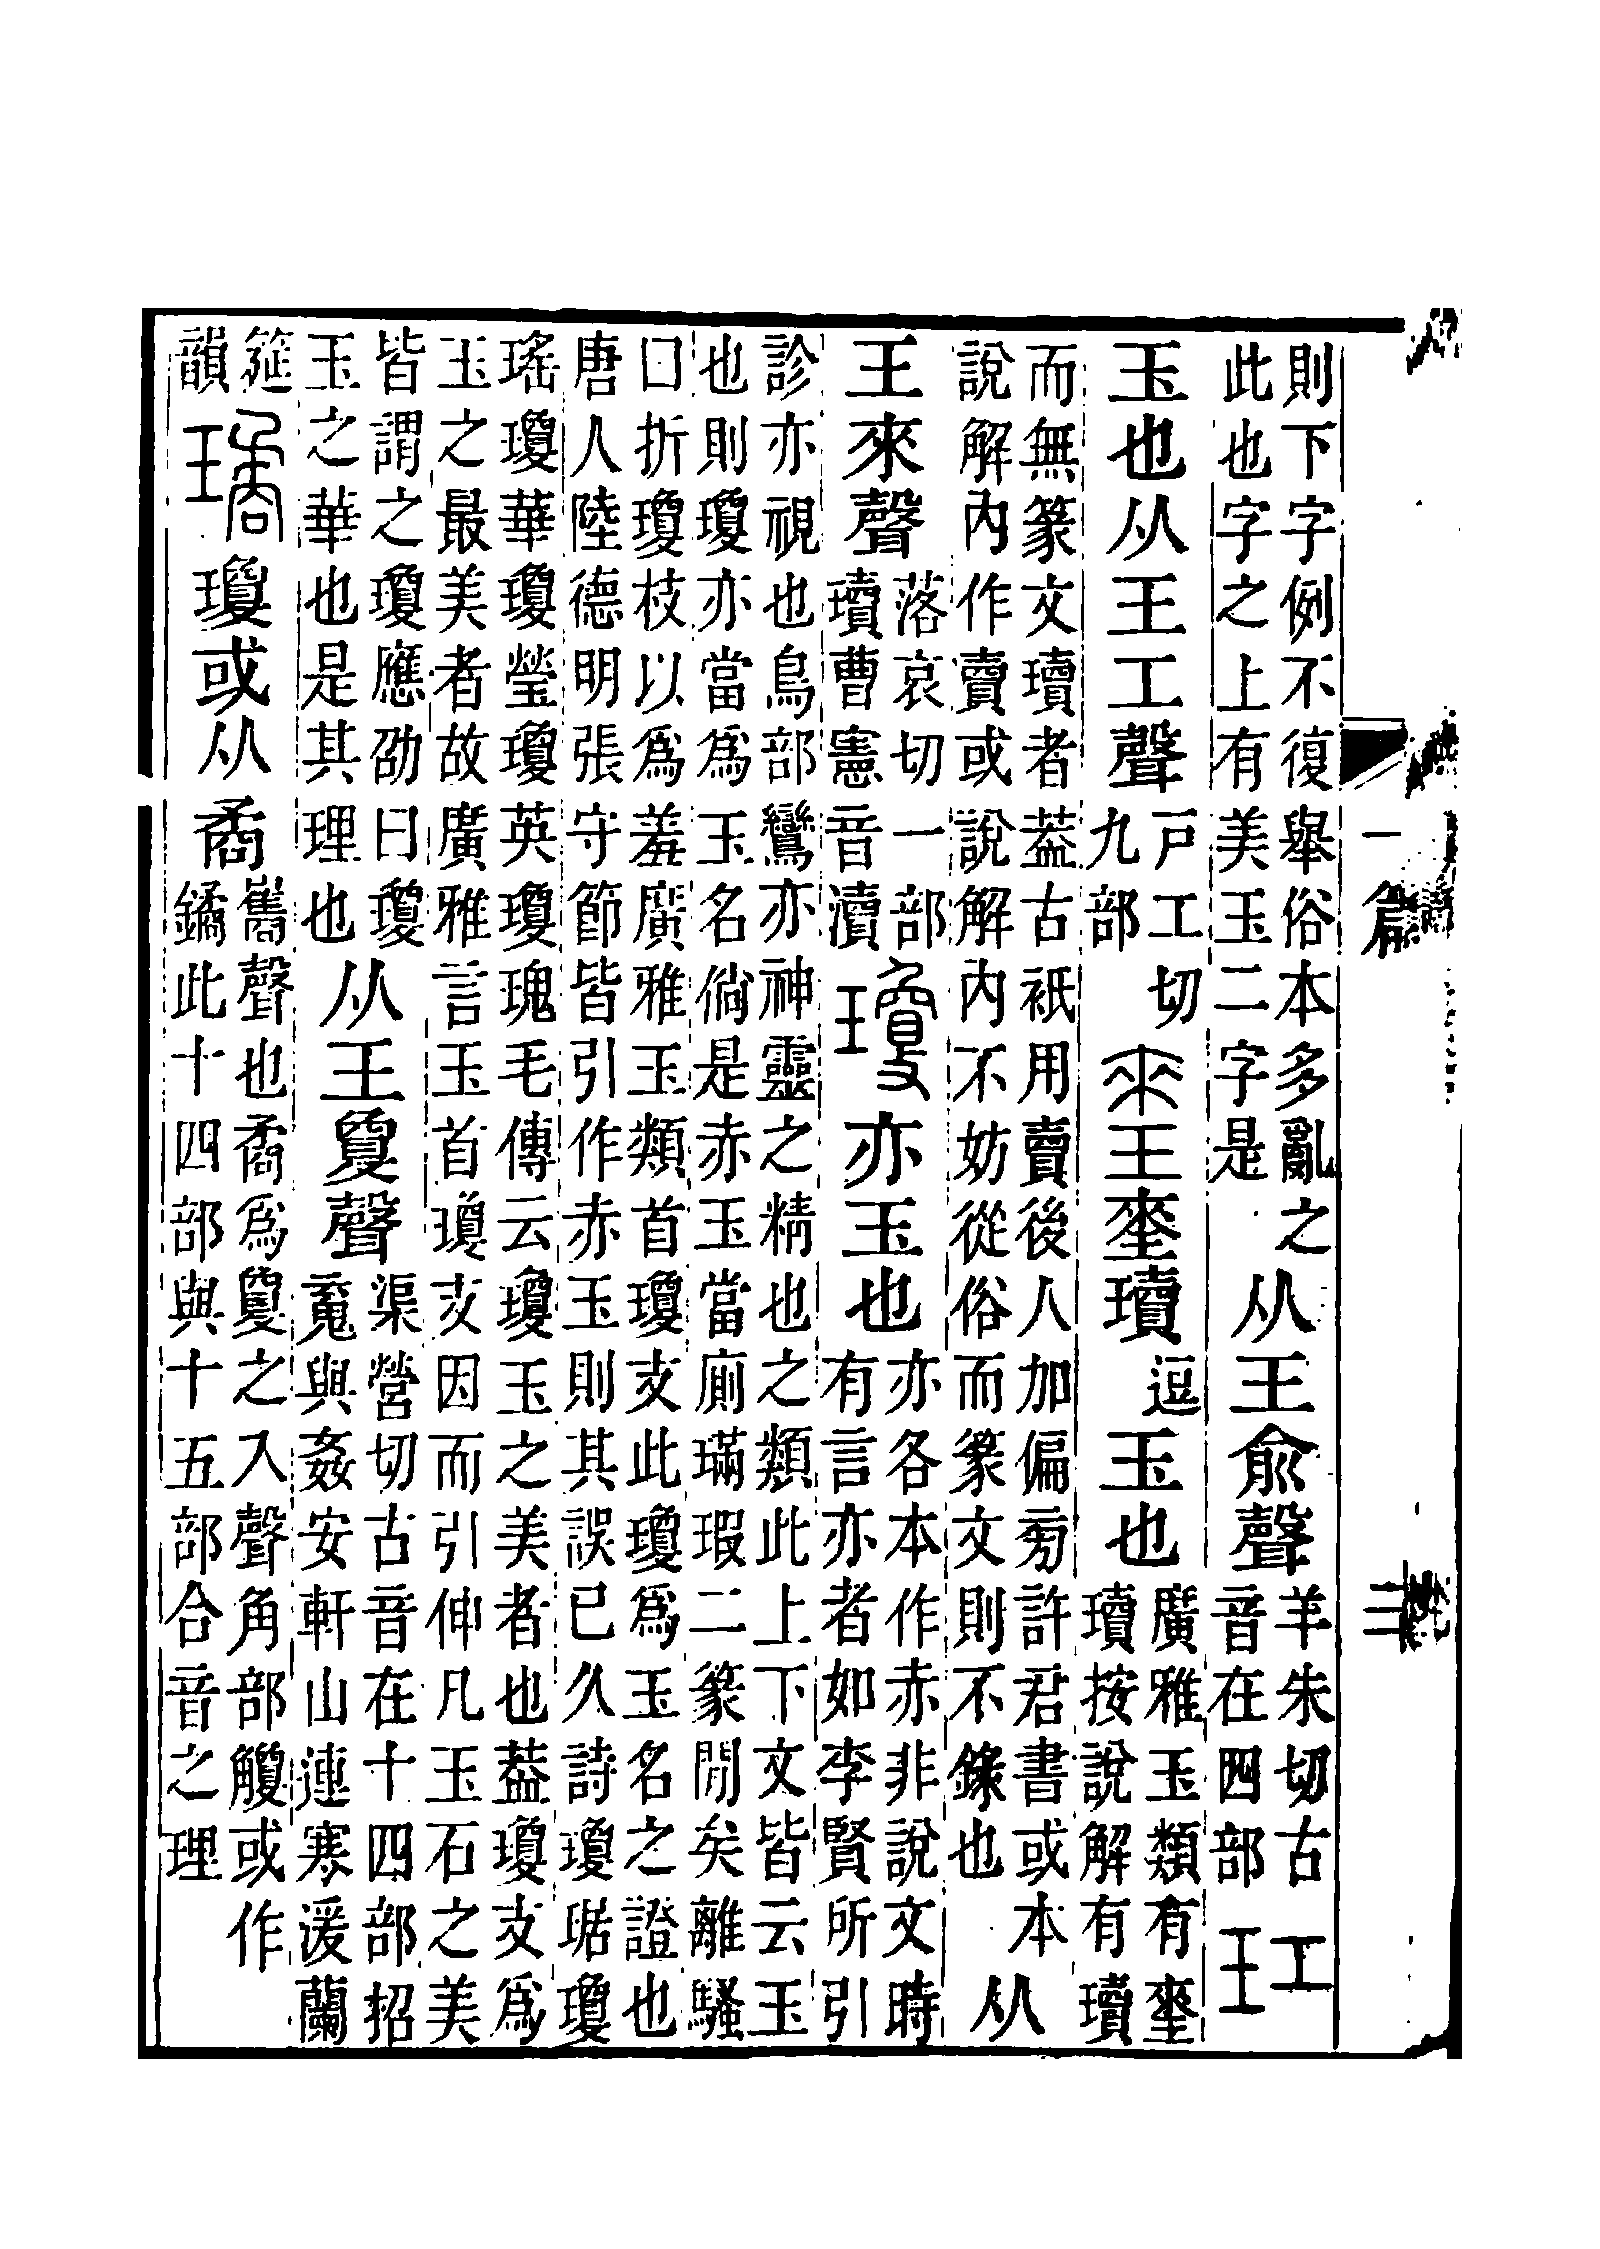 一篇
則下字例不復舉俗本多亂之
此也字之上有美玉二字是
从王俞聲
羊朱切古
音在四部
玒
玉也从王工聲
戶工切
九部
琜
琜瓄
逗
玉也
廣雅玉類有琜
瓄按說解有瓄
而無篆文瓄者葢古衹用賣後人加偏旁許君書或本
說解內作賣或說解內不妨從俗而篆文則不錄也
从
王來聲
落哀切一部
瓄曹憲音瀆
瓊
亦玉也
亦各本作赤非說文時
有言亦者如李賢所引
診亦視也鳥部鸞亦神靈之精也之類此上下文皆云玉
也則瓊亦當爲玉名倘是赤玉當廁璊瑕二篆閒矣離騷
曰折瓊枝以爲羞廣雅玉類首瓊支此瓊爲玉名之證也
唐人陸德明張守節皆引作赤玉則其誤已久詩瓊琚瓊
瑤瓊華瓊瑩瓊英瓊瑰毛傳云瓊玉之美者也葢瓊支爲
玉之最美者故廣雅言玉首瓊支因而引伸凡玉石之美
皆謂之瓊應劭曰瓊
玉之華也是其理也
从王夐聲
渠營切古音在十四部招
䰟與姦安軒山連寒湲蘭
筵
韻
璚
瓊或从矞
巂聲也矞爲夐之入聲角部觼或作
鐍此十四部與十五部合音之理